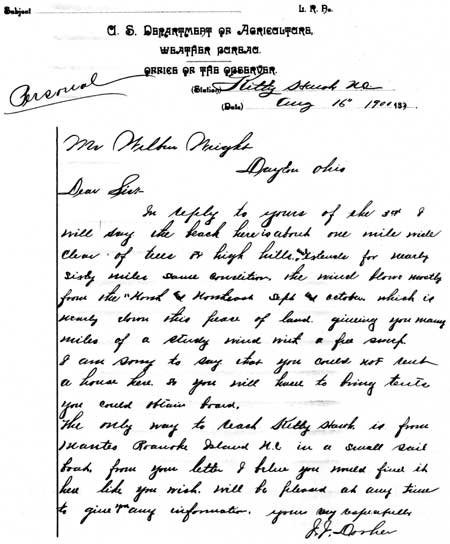 Subject
L. R. No.
U. S. DEPARTMENT OF AGRICULTURE,
WEATHER BUREAU.
OFFICE OF THE OBSERVER.
Personal
(Station) Kitty Hawk NC
(Date) Aug 16" 1900 189
Mr Wilbur Wright
Dayton Ohio
Dear Sir
In reply to yours of the 3rd I
will say the beach here is about one mile wide
clear of trees or high hills, extends for nearly
sixty miles same condition. the wind blows mostly
from the North & Northeast Sept & October which is
nearly down this peace of land. giveing you many
miles of a study wind with a free sweep
I am sorry to say that you could not rent
a house here. so you will have to bring tents
you could obtain board.
the only way to reach Kitty Hawk is from
Manteo Roanoke Island N.C in a small sail
boat. from your letter I beleve you would find it
here like you wish. will be pleased at any time
to give any information. yours respectfully
J.J. Dosher